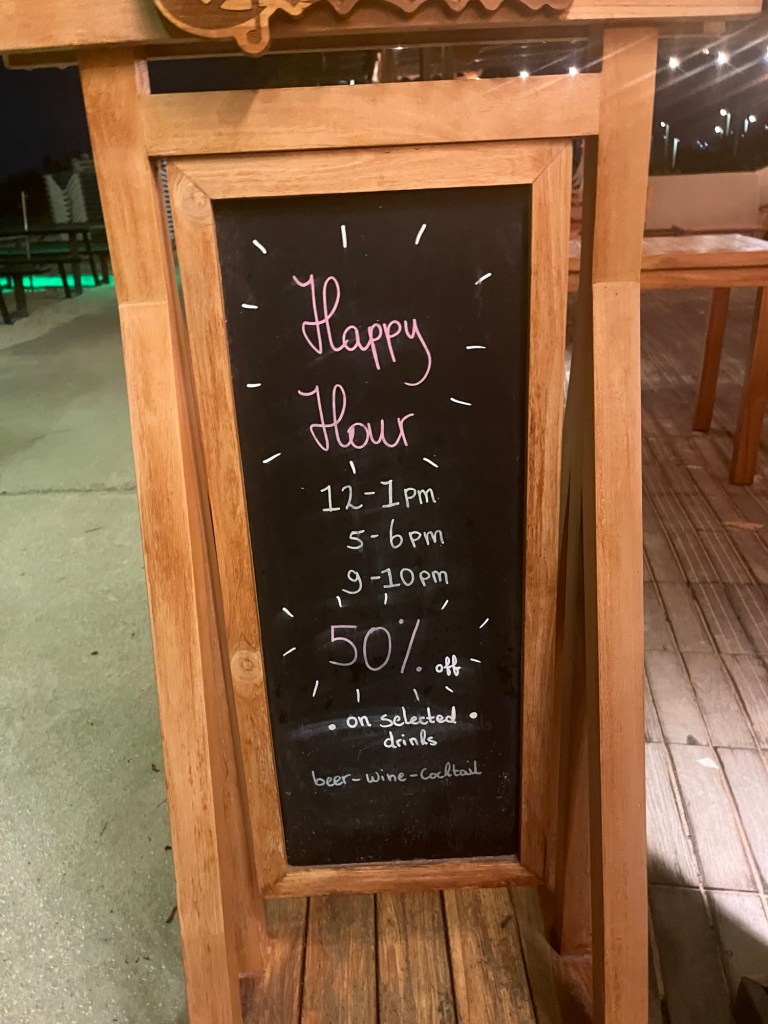 Happy
Hour
12-1pm
5-6pm
9-10pm
50% off
• on selected •
drinks
beer-wine-cocktail